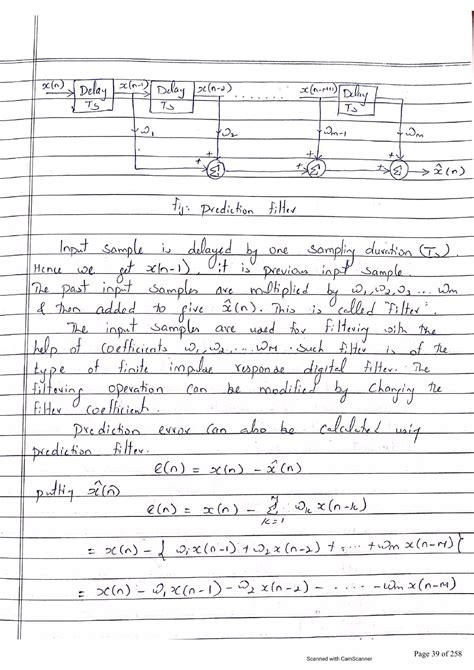 x(n) Delay Ts x(n-1) Delay Ts x(n-2) ....... x(n-M+1) Delay Ts
ω1 ω2 ωm-1 ωm
+ Σ + + Σ + + Σ x̂(n)
fig: prediction filter
Input sample is delayed by one sampling duration (Ts)
Hence we get x(n-1), it is previous input sample.
The past input samples are multiplied by ω1, ω2, ω3 ... ωm
& then added to give x̂(n). This is called "Filter".
The input samples are used for filtering with the
help of coefficients ω1, ω2, ... ωM. Such filter is of the
type of finite impulse response digital filter. The
filtering operation can be modified by changing the
filter coefficient.
Prediction error can also be calculated using
prediction filter.
e(n) = x(n) - x̂(n)
putting x̂(n)
e(n) = x(n) - Σ k=1 ωk x(n-k)
= x(n) - { ω1x(n-1) + ω2x(n-2) + ... + ωm x(n-M) }
= x(n) - ω1 x(n-1) - ω2 x(n-2) - ...... - ωm x(n-M)
Page 39 of 258
Scanned with CamScanner